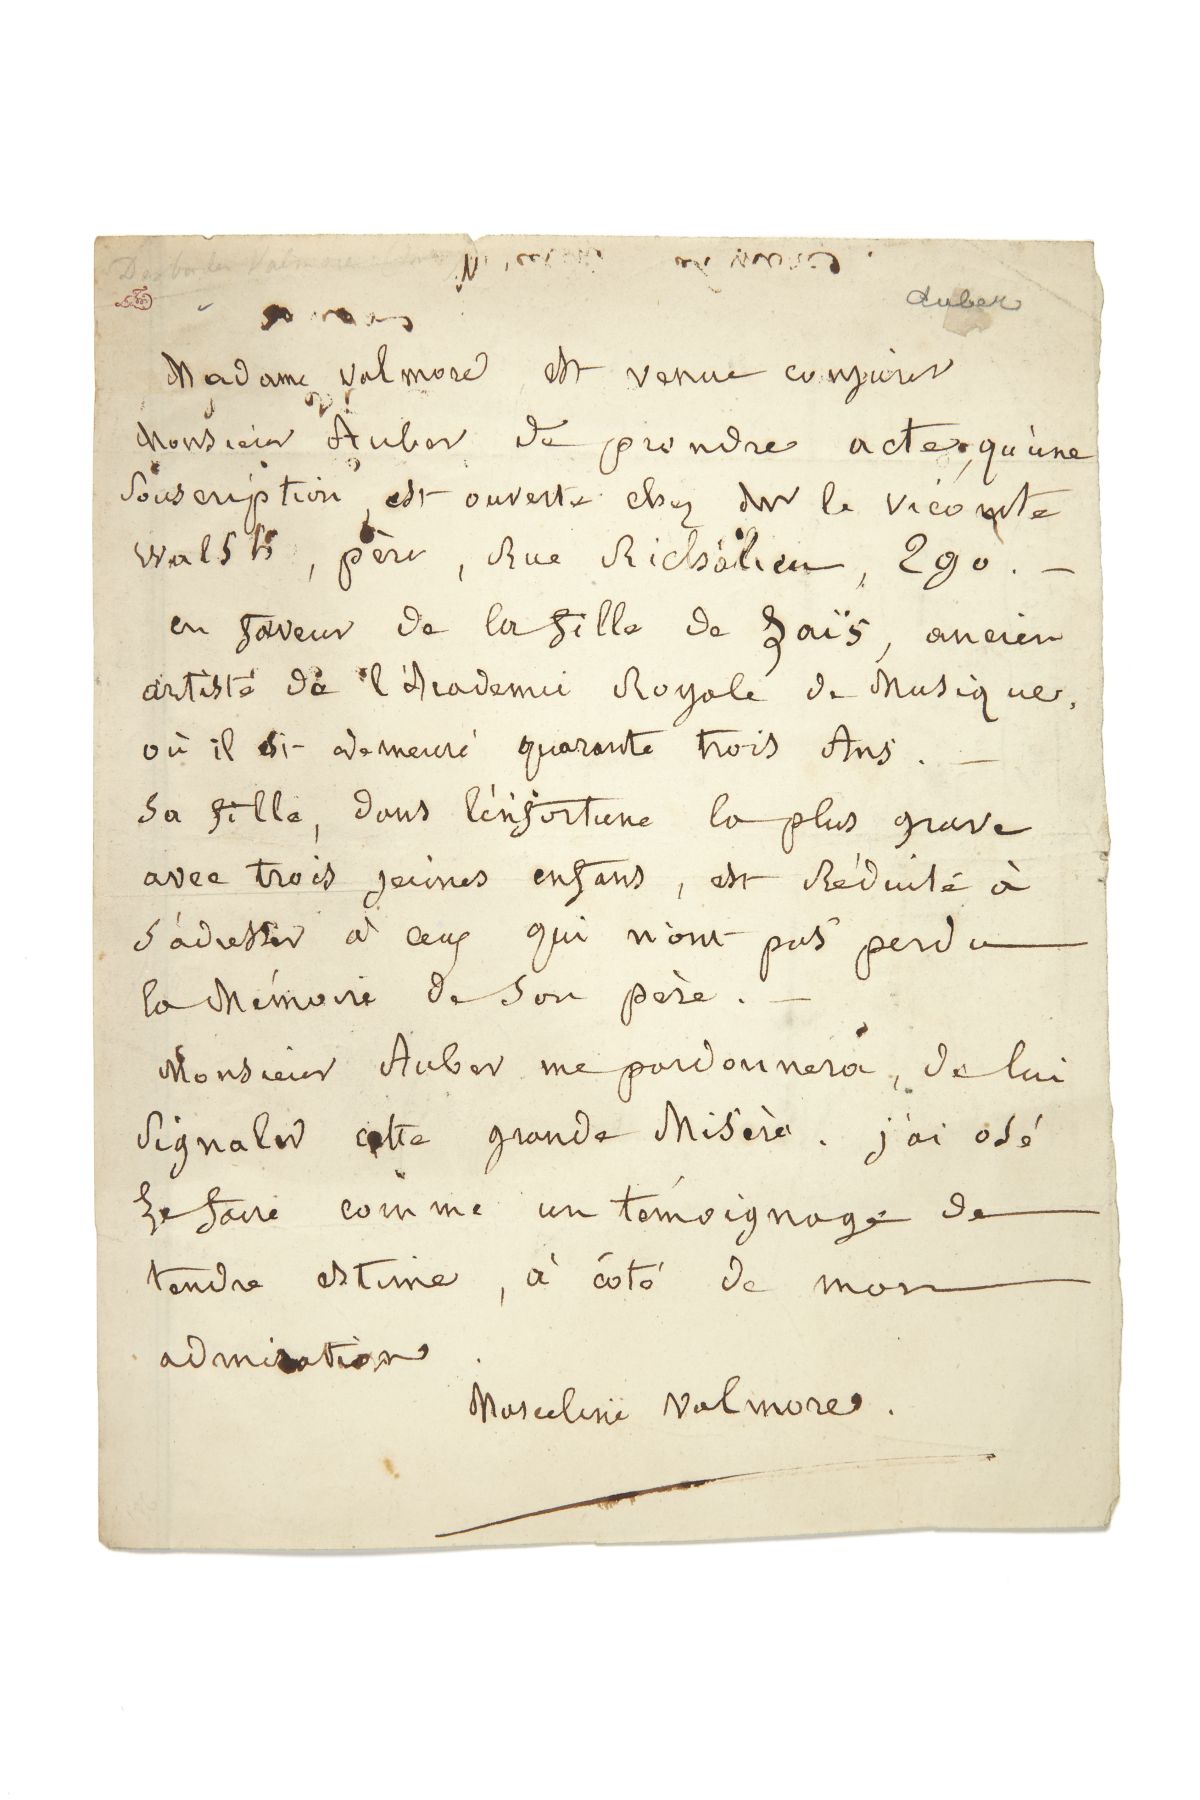 Desbordes Valmore
Auber
Madame Valmore est venue conjurer
Monsieur Auber de prendre acte, qu'une
Souscription est ouverte chez Mr le vicomte
Walsh, père, Rue Richelieu, 290. —
en faveur de la fille de Laïs, ancien
artiste de l'Académie Royale de Musique,
où il est demeuré quarante trois Ans. —
Sa fille, dans l'infortune la plus grave
avec trois jeunes enfans, est Réduite à
S'adresser à ceux qui n'ont pas perdu
la Mémoire de Son père. —
Monsieur Auber me pardonnera, de lui
Signaler cette grande Misère. j'ai osé
Le faire comme un témoignage de
tendre estime, à coté de mon
admiration.
Marceline Valmore.